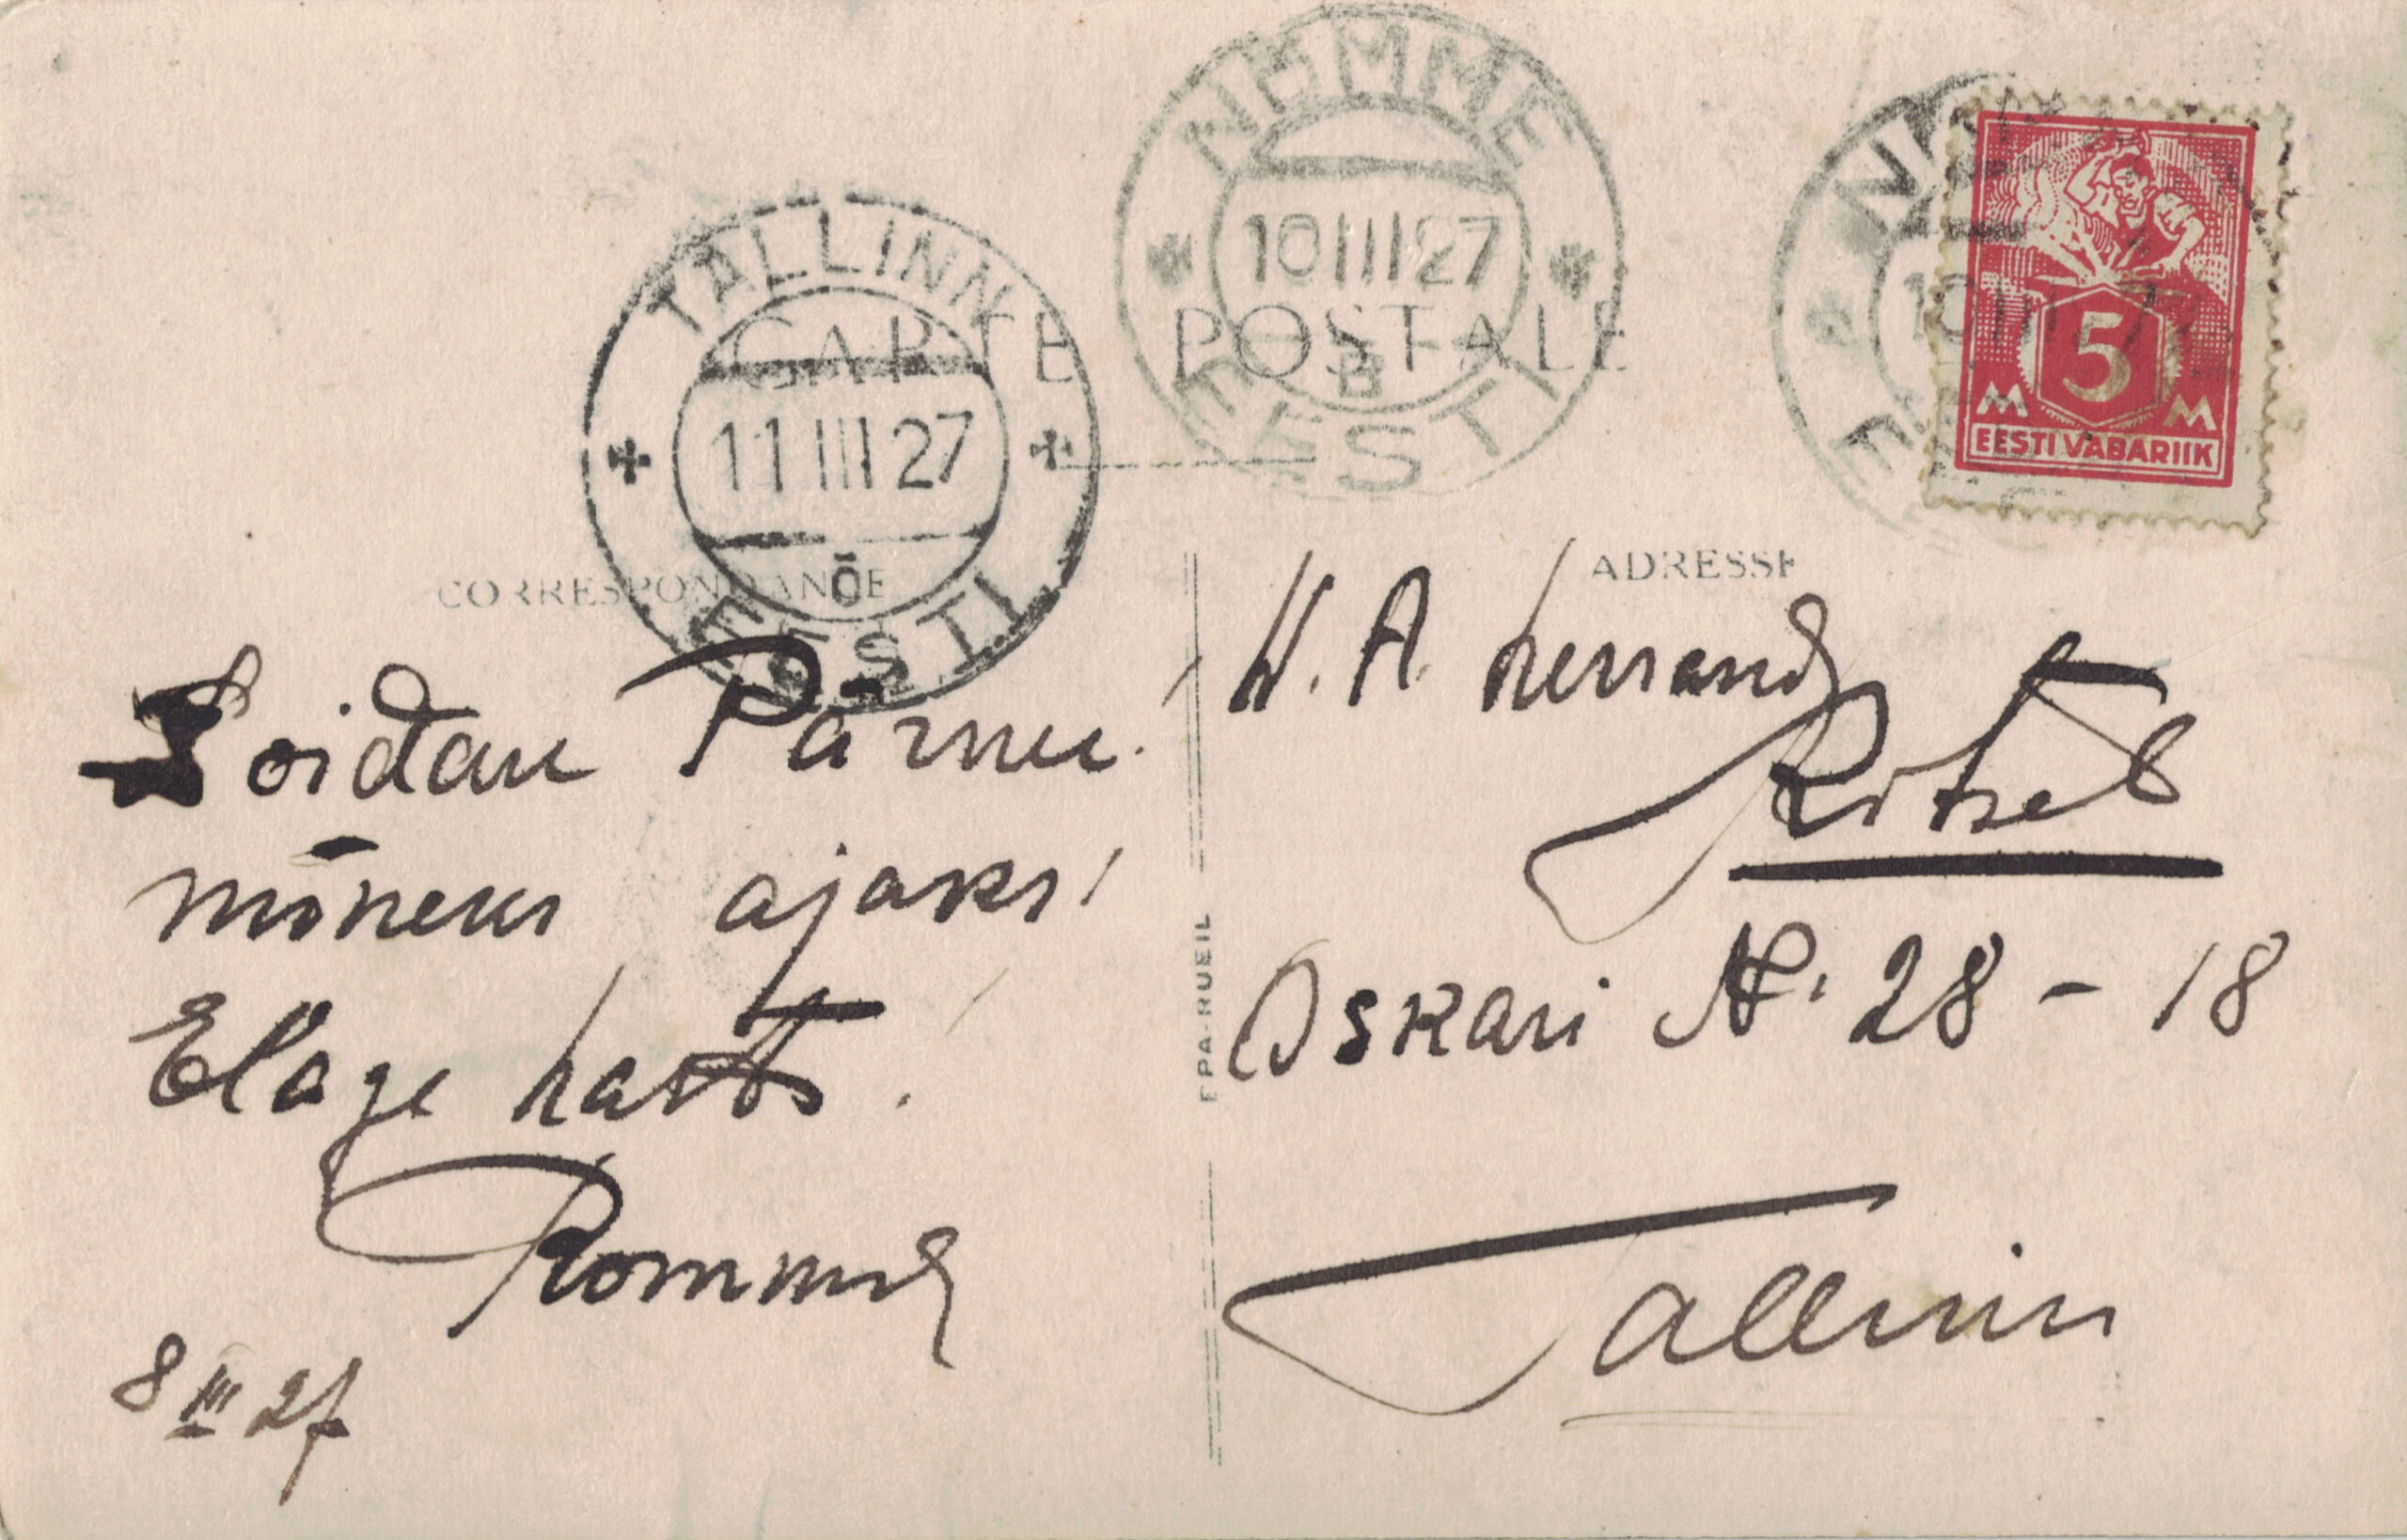 NÕMME
10 III 27
B
EESTI
TALLINN
11 III 27
Ō
EESTI
CARTE POSTALE
5
M M
EESTI VABARIIK
CORRESPONDANCE
ADRESSE
Soidan Pärnu.
mōneks ajaks!
Eläge hästi!
8 III 27
EPA-RUEIL
H. A. herrand
Oskari N. 28 - 18
Tallinn